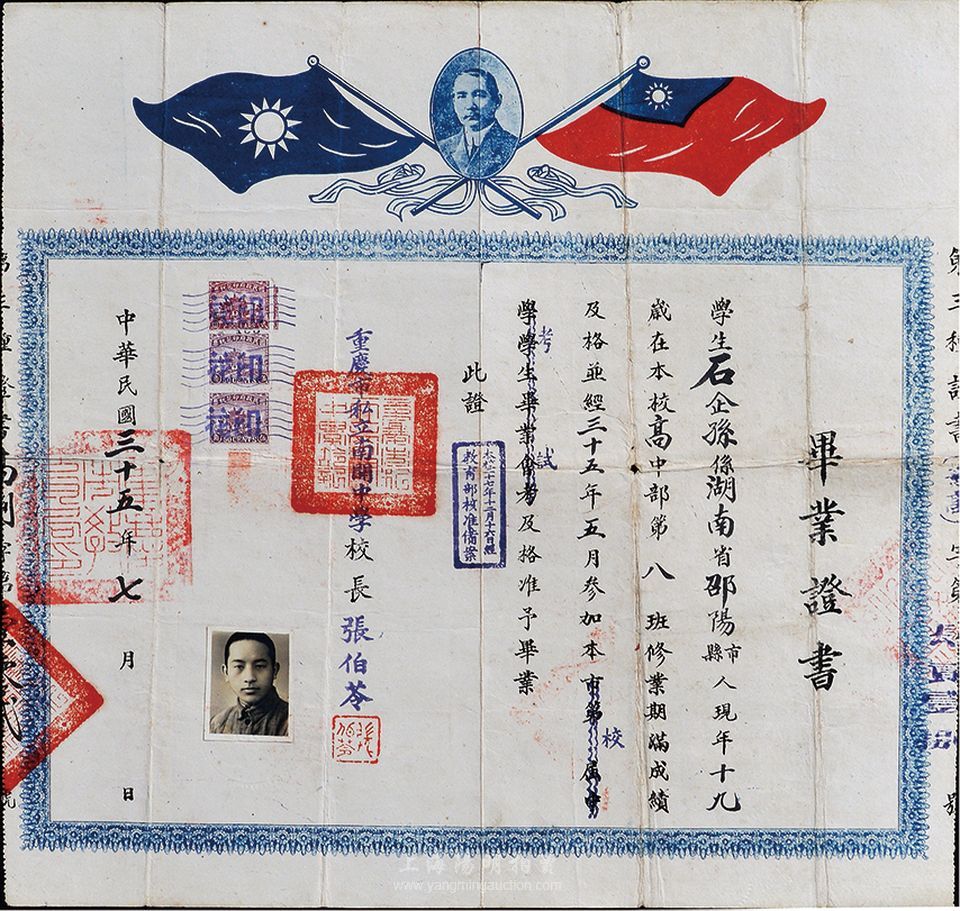 畢業證書
學生石企孫係湖南省邵陽市縣人現年十九
歲在本校高中部第八班修業期滿成績
及格並經三十五年五月參加本市第屆中校
學學生畢業會考及格准予畢業
考試
此證
本校二十七年十二月十六日經
教育部核准備案
重慶市私立南開中學校長張伯苓
中華民國三十五年七月日
印花
印花
印花
上海陽明拍賣
www.yangmingauction.com